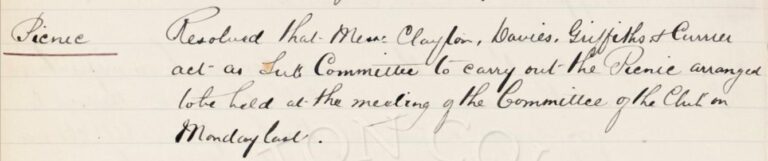 Picnic
Resolved that Messrs Clayton, Davies, Griffiths & Currier
act as Sub Committee to carry out the Picnic arranged
to be held at the meeting of the Committee of the Club on
Monday last.